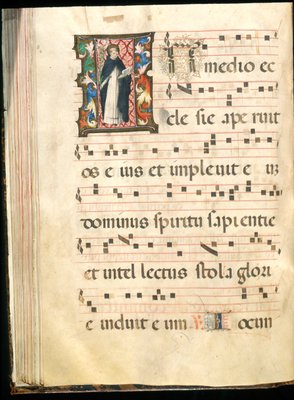 In medio ec
cle sie ape ruit
os e ius et impleuit e um
dominus spiritu sapientie
et intel lectus stola glori
e induit e um Iocun